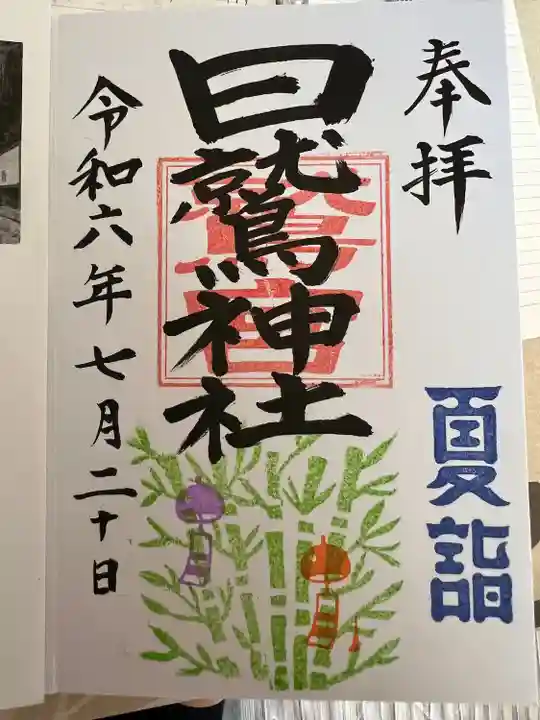 奉拝
夏詣
日鷲神社
鷲宮
令和六年七月二十日